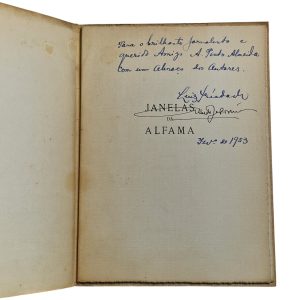 Para o brilhante jornalista e
querido Amigo A. Pinto Almeida
com um abraço dos Autores.
Luiz Trindade
JANELAS
DE
ALFAMA
Fev.º de 1953